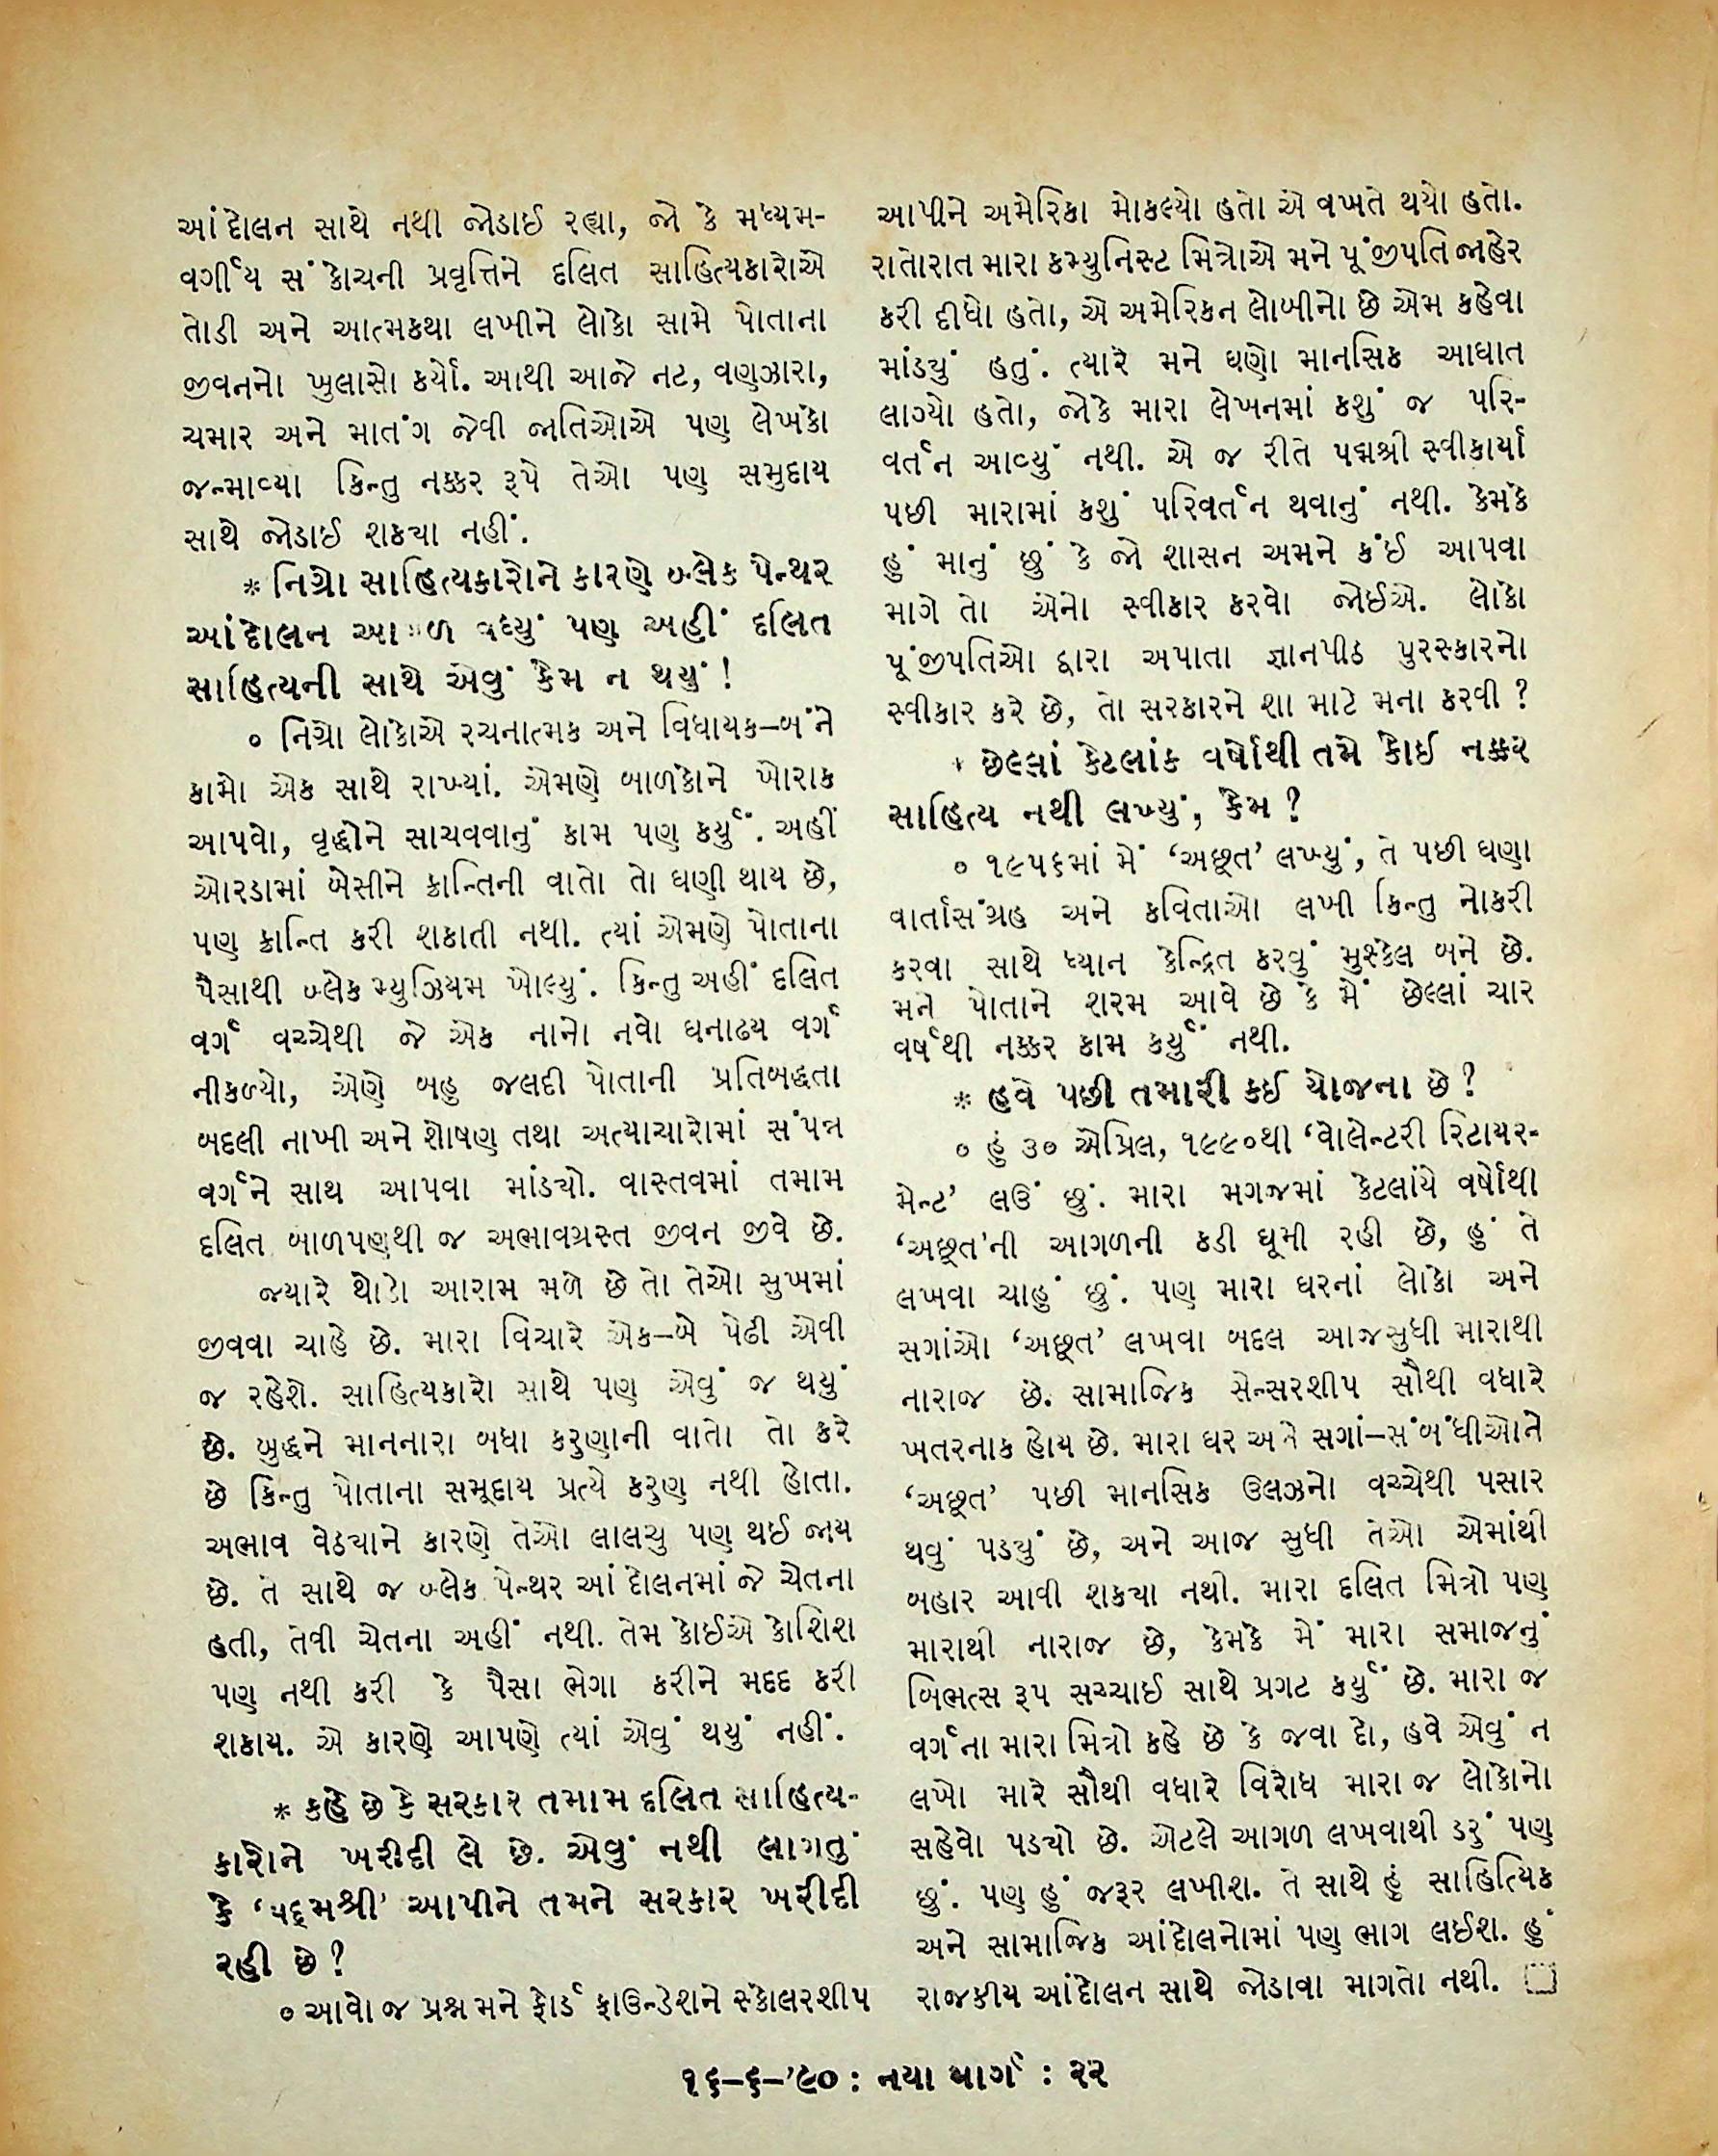 આંદોલન સાથે નથી જોડાઈ રહ્યા, જો કે મધ્યમ-
વર્ગીય સંકોચની પ્રવૃત્તિને દલિત સાહિત્યકારોએ
તોડી અને આત્મકથા લખીને લોકો સામે પોતાના
જીવનનો ખુલાસો કર્યો. આથી આજે નટ, વણઝારા,
ચમાર અને માતંગ જેવી જાતિઓએ પણ લેખકો
જન્માવ્યા કિન્તુ નક્કર રૂપે તેઓ પણ સમુદાય
સાથે જોડાઈ શક્યા નહીં.
* નિગ્રો સાહિત્યકારોને કારણે બ્લેક પેન્થર
આંદોલન આગળ વધ્યું પણ અહીં દલિત
સાહિત્યની સાથે એવું કેમ ન થયું !
૦ નિગ્રો લોકોએ રચનાત્મક અને વિધાયક–બંને
કામો એક સાથે રાખ્યાં. એમણે બાળકોને ખોરાક
આપવો, વૃદ્ધોને સાચવવાનું કામ પણ કર્યું. અહીં
ઓરડામાં બેસીને ક્રાન્તિની વાતો તો ઘણી થાય છે,
પણ ક્રાન્તિ કરી શકાતી નથી. ત્યાં એમણે પોતાના
પૈસાથી બ્લેક મ્યુઝિયમ ખોલ્યું. કિન્તુ અહીં દલિત
વર્ગ વચ્ચેથી જે એક નાનો નવો ધનાઢય વર્ગ
નીકળ્યો, એણે બહુ જલદી પોતાની પ્રતિબદ્ધતા
બદલી નાખી અને શોષણ તથા અત્યાચારોમાં સંપન્ન
વર્ગને સાથ આપવા માંડ્યો. વાસ્તવમાં તમામ
દલિત બાળપણથી જ અભાવગ્રસ્ત જીવન જીવે છે.
જ્યારે થોડો આરામ મળે છે તો તેઓ સુખમાં
જીવવા ચાહે છે. મારા વિચારે એક–બે પેઢી એવી
જ રહેશે. સાહિત્યકારો સાથે પણ એવું જ થયું
છે. બુદ્ધને માનનારા બધા કરુણાની વાતો તો કરે
છે કિન્તુ પોતાના સમૂદાય પ્રત્યે કરુણ નથી હોતા.
અભાવ વેઠ્યાને કારણે તેઓ લાલચુ પણ થઈ જાય
છે. તે સાથે જ બ્લેક પેન્થર આંદોલનમાં જે ચેતના
હતી, તેવી ચેતના અહીં નથી. તેમ કોઈએ કોશિશ
પણ નથી કરી કે પૈસા ભેગા કરીને મદદ કરી
શકાય. એ કારણે આપણે ત્યાં એવું થયું નહીં.
* કહે છે કે સરકાર તમામ દલિત સાહિત્ય-
કારોને ખરીદી લે છે. એવું નથી લાગતું
કે ‘પદ્મશ્રી’ આપીને તમને સરકાર ખરીદી
રહી છે ?
૦ આવો જ પ્રશ્ન મને ફોર્ડ ફાઉન્ડેશને સ્કોલરશીપ
આપીને અમેરિકા મોકલ્યો હતો એ વખતે થયો હતો.
રાતોરાત મારા કમ્યુનિસ્ટ મિત્રોએ મને પૂંજીપતિ જાહેર
કરી દીધો હતો, એ અમેરિકન લોબીનો છે એમ કહેવા
માંડયું હતું. ત્યારે મને ઘણો માનસિક આઘાત
લાગ્યો હતો, જોકે મારા લેખનમાં કશું જ પરિ-
વર્તન આવ્યું નથી. એ જ રીતે પદ્મશ્રી સ્વીકાર્યા
પછી મારામાં કશું પરિવર્તન થવાનું નથી. કેમકે
હું માનું છું કે જો શાસન અમને કંઈ આપવા
માગે તો એનો સ્વીકાર કરવો જોઈએ. લોકો
પૂંજીપતિઓ દ્વારા અપાતા જ્ઞાનપીઠ પુરસ્કારનો
સ્વીકાર કરે છે, તો સરકારને શા માટે મના કરવી ?
* છેલ્લાં કેટલાંક વર્ષોથી તમે કોઈ નક્કર
સાહિત્ય નથી લખ્યું, કેમ ?
૦ ૧૯૫૬માં મેં ‘અછૂત’ લખ્યું, તે પછી ઘણા
વાર્તાસંગ્રહ અને કવિતાઓ લખી કિન્તુ નોકરી
કરવા સાથે ધ્યાન કેન્દ્રિત કરવું મુશ્કેલ બને છે.
મને પોતાને શરમ આવે છે કે મેં છેલ્લાં ચાર
વર્ષથી નક્કર કામ કર્યું નથી.
* હવે પછી તમારી કઈ યોજના છે ?
૦ હું ૩૦ એપ્રિલ, ૧૯૯૦થી ‘વોલેન્ટરી રિટાયર-
મેન્ટ’ લઉં છું. મારા મગજમાં કેટલાંયે વર્ષોથી
‘અછૂત’ની આગળની કડી ઘૂમી રહી છે, હું તે
લખવા ચાહું છું. પણ મારા ઘરનાં લોકો અને
સગાંઓ ‘અછૂત’ લખવા બદલ આજસુધી મારાથી
નારાજ છે. સામાજિક સેન્સરશીપ સૌથી વધારે
ખતરનાક હોય છે. મારા ઘર અને સગાં–સંબંધીઓને
‘અછૂત’ પછી માનસિક ઉલઝનો વચ્ચેથી પસાર
થવું પડયું છે, અને આજ સુધી તેઓ એમાંથી
બહાર આવી શક્યા નથી. મારા દલિત મિત્રો પણ
મારાથી નારાજ છે, કેમકે મેં મારા સમાજનું
બિભત્સ રૂપ સચ્ચાઈ સાથે પ્રગટ કર્યું છે. મારા જ
વર્ગના મારા મિત્રો કહે છે કે જવા દો, હવે એવું ન
લખો મારે સૌથી વધારે વિરોધ મારા જ લોકોનો
સહેવો પડ્યો છે. એટલે આગળ લખવાથી ડરું પણ
છું. પણ હું જરૂર લખીશ. તે સાથે હું સાહિત્યિક
અને સામાજિક આંદોલનોમાં પણ ભાગ લઈશ. હું
રાજકીય આંદોલન સાથે જોડાવા માગતો નથી.
૧૬–૬–’૯૦ : નયા માર્ગ : ૨૨